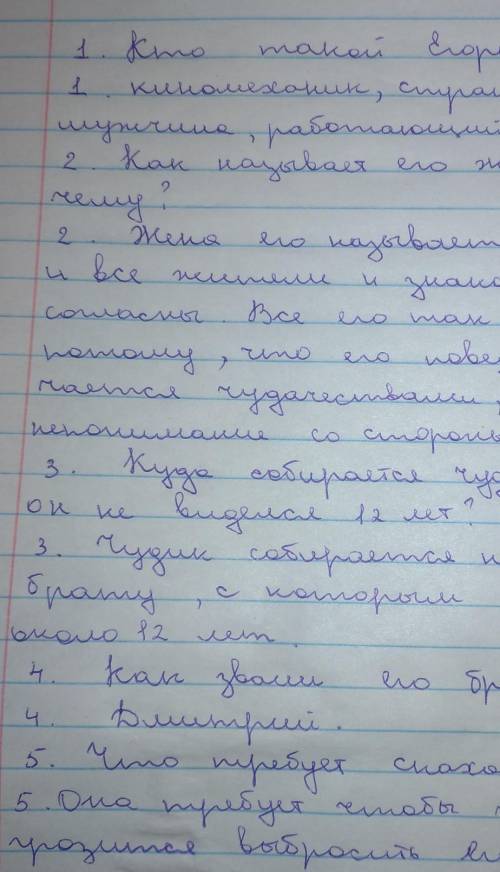 1. Кто такой Егор
1. киномеханик, стран
мужчина, работающий
2. Как называет его ж
чему?
2. Жена его называет
и все жители и знако
согласны. Все его так
потому, что его пове
чается чудачествами,
непонимание со стороны
3. Куда собирается чуд
он не виделся 12 лет?
3. Чудик собирается к
брату, с которым
около 12 лет.
4. Как звали его бр
4. Дмитрий.
5. Что требует снаха
5. Она требует чтобы
грозится выбросить ег